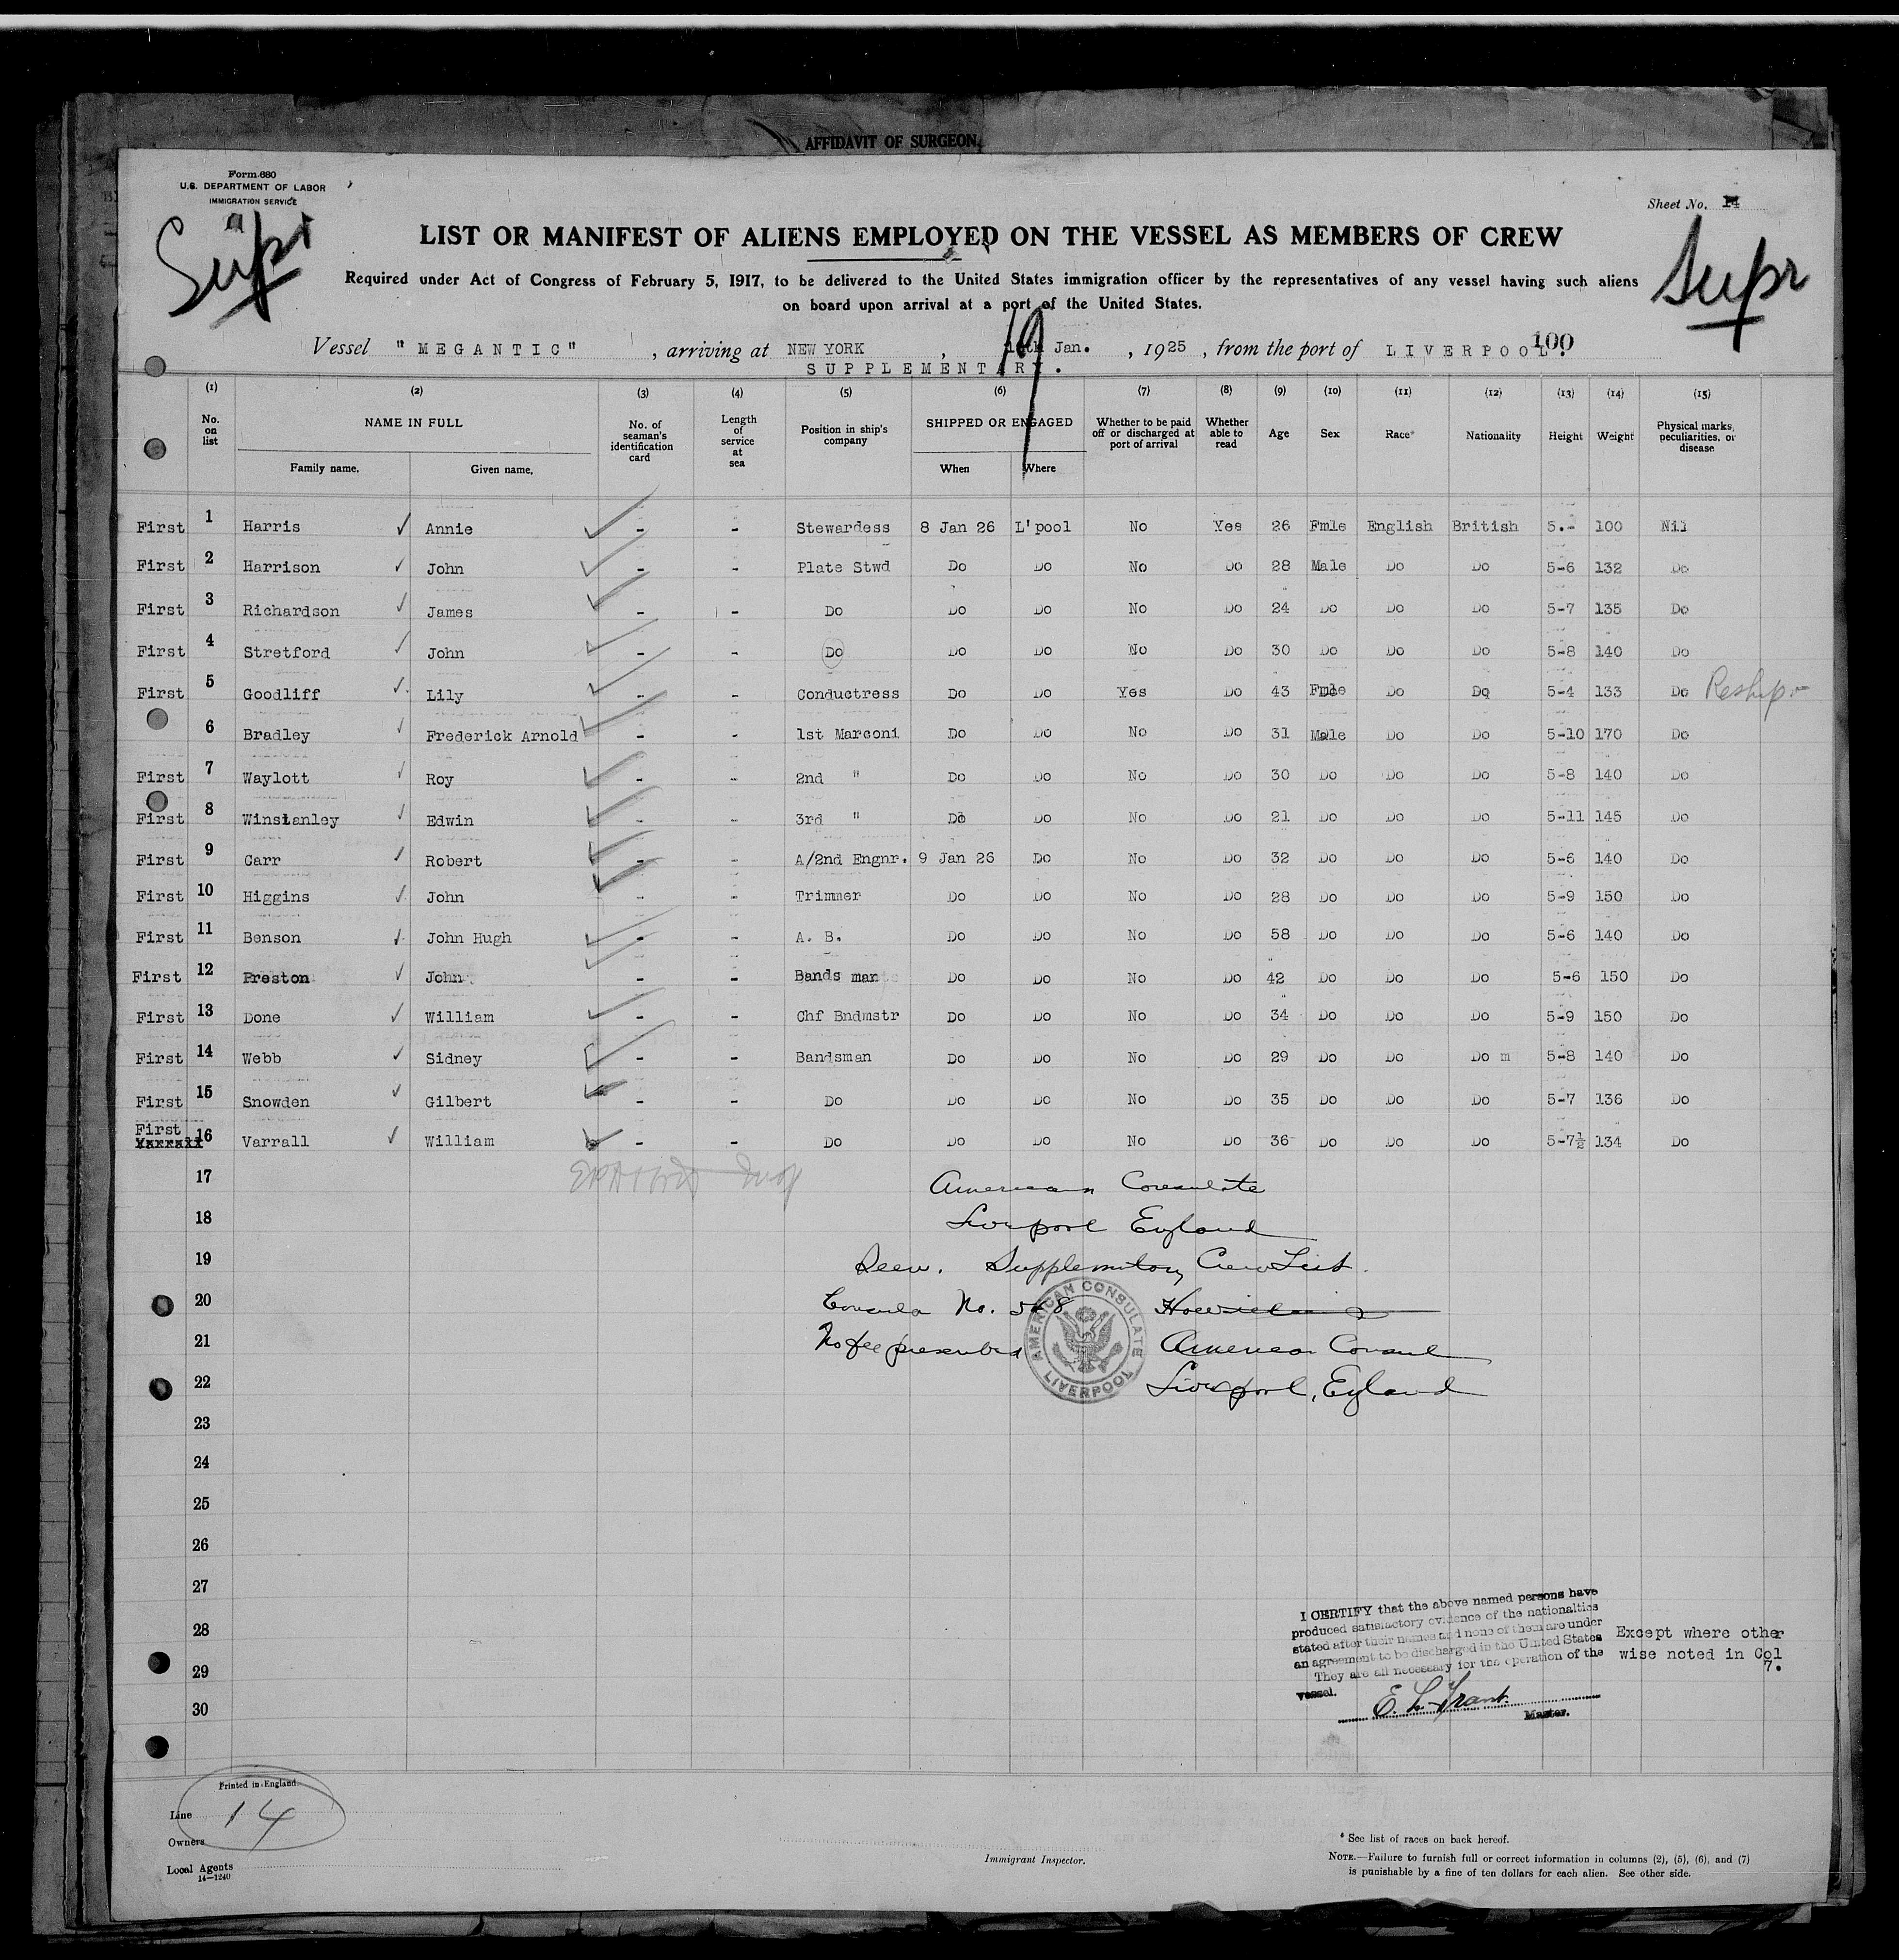 AFFIDAVIT OF SURGEON.
Form 680
U.S. DEPARTMENT OF LABOR
IMMIGRATION SERVICE
Sheet No.
Supr
Supr
LIST OR MANIFEST OF ALIENS EMPLOYED ON THE VESSEL AS MEMBERS OF CREW
Required under Act of Congress of February 5, 1917, to be delivered to the United States immigration officer by the representatives of any vessel having such aliens
on board upon arrival at a port of the United States.
Vessel "MEGANTIC", arriving at NEW YORK, 19 Jan., 1925, from the port of LIVERPOOL. 100
SUPPLEMENTARY.
(1) (2) (3) (4) (5) (6) (7) (8) (9) (10) (11) (12) (13) (14) (15)
No. on list NAME IN FULL Family name. Given name. No. of seaman's identification card Length of service at sea Position in ship's company SHIPPED OR ENGAGED When Where Whether to be paid off or discharged at port of arrival Whether able to read Age Sex Race* Nationality Height Weight Physical marks, peculiarities, or disease
First 1 Harris Annie - - Stewardess 8 Jan 26 L'pool No Yes 26 Fmle English British 5.- 100 Nil
First 2 Harrison John - - Plate Stwd Do Do No Do 28 Male Do Do 5-6 132 Do
First 3 Richardson James - - Do Do Do No Do 24 Do Do Do 5-7 135 Do
First 4 Stretford John - - Do Do Do No Do 30 Do Do Do 5-8 140 Do
First 5 Goodliff Lily - - Conductress Do Do Yes Do 43 Fmle Do Do 5-4 133 Do Reship
6 Bradley Frederick Arnold - - 1st Marconi Do Do No Do 31 Male Do Do 5-10 170 Do
First 7 Waylott Roy - - 2nd " Do Do No Do 30 Do Do Do 5-8 140 Do
First 8 Winstanley Edwin - - 3rd " Do Do No Do 21 Do Do Do 5-11 145 Do
First 9 Carr Robert - - A/2nd Engnr. 9 Jan 26 Do No Do 32 Do Do Do 5-6 140 Do
First 10 Higgins John - - Trimmer Do Do No Do 28 Do Do Do 5-9 150 Do
First 11 Benson John Hugh - - A. B. Do Do No Do 58 Do Do Do 5-6 140 Do
First 12 Preston John - - Bands man Do Do No Do 42 Do Do Do 5-6 150 Do
First 13 Done William - - Chf Bndmstr Do Do No Do 34 Do Do Do 5-9 150 Do
First 14 Webb Sidney - - Bandsman Do Do No Do 29 Do Do Do m 5-8 140 Do
First 15 Snowden Gilbert - - Do Do Do No Do 35 Do Do Do 5-7 136 Do
First 16 Varrall William - - Do Do Do No Do 36 Do Do Do 5-7½ 134 Do
17 American Consulate
18 Liverpool England
19 Seen. Supplementary Crew List.
20 No.
21 No fee prescribed American Consul
22 Liverpool, England
AMERICAN CONSULATE LIVERPOOL
23
24
25
26
27
28
29
30
I CERTIFY that the above named persons have
produced satisfactory evidence of the nationalties
stated after their names and none of them are under
an agreement to be discharged in the United States
They are all necessary for the operation of the
vessel.
Except where other
wise noted in Col
7.
E. L. Trant
Master.
Printed in England
Line 14
Owners
Local Agents
14—1240
Immigrant Inspector.
* See list of races on back hereof.
NOTE.—Failure to furnish full or correct information in columns (2), (5), (6), and (7)
is punishable by a fine of ten dollars for each alien. See other side.